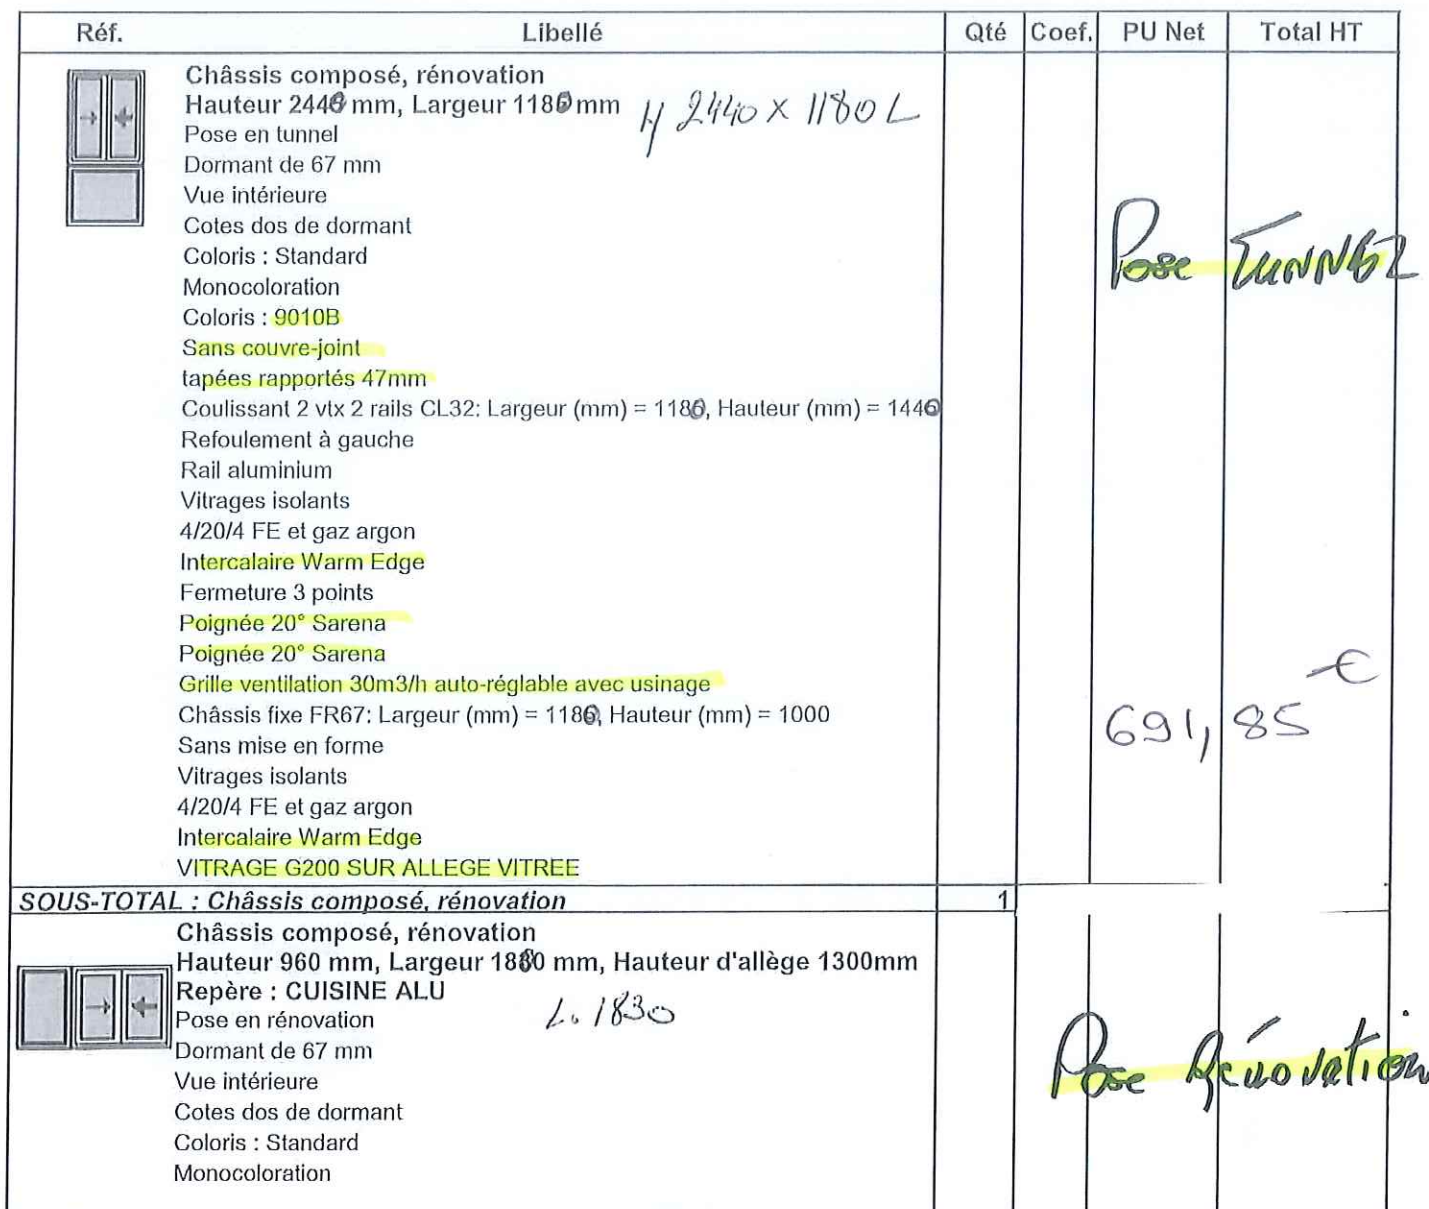 Réf. Libellé Qté Coef. PU Net Total HT
Châssis composé, rénovation
Hauteur 2440 mm, Largeur 1180 mm H 2440 x 1180 L
Pose en tunnel
Dormant de 67 mm
Vue intérieure
Cotes dos de dormant
Pose TUNNEL
Coloris : Standard
Monocoloration
Coloris : 9010B
Sans couvre-joint
tapées rapportés 47mm
Coulissant 2 vtx 2 rails CL32: Largeur (mm) = 1180, Hauteur (mm) = 1440
Refoulement à gauche
Rail aluminium
Vitrages isolants
4/20/4 FE et gaz argon
Intercalaire Warm Edge
Fermeture 3 points
Poignée 20° Sarena
Poignée 20° Sarena
Grille ventilation 30m3/h auto-réglable avec usinage
Châssis fixe FR67: Largeur (mm) = 1180, Hauteur (mm) = 1000 691,85 €
Sans mise en forme
Vitrages isolants
4/20/4 FE et gaz argon
Intercalaire Warm Edge
VITRAGE G200 SUR ALLEGE VITREE
SOUS-TOTAL : Châssis composé, rénovation 1
Châssis composé, rénovation
Hauteur 960 mm, Largeur 1830 mm, Hauteur d'allège 1300mm
Repère : CUISINE ALU
Pose en rénovation L. 1830
Dormant de 67 mm
Pose Rénovation
Vue intérieure
Cotes dos de dormant
Coloris : Standard
Monocoloration